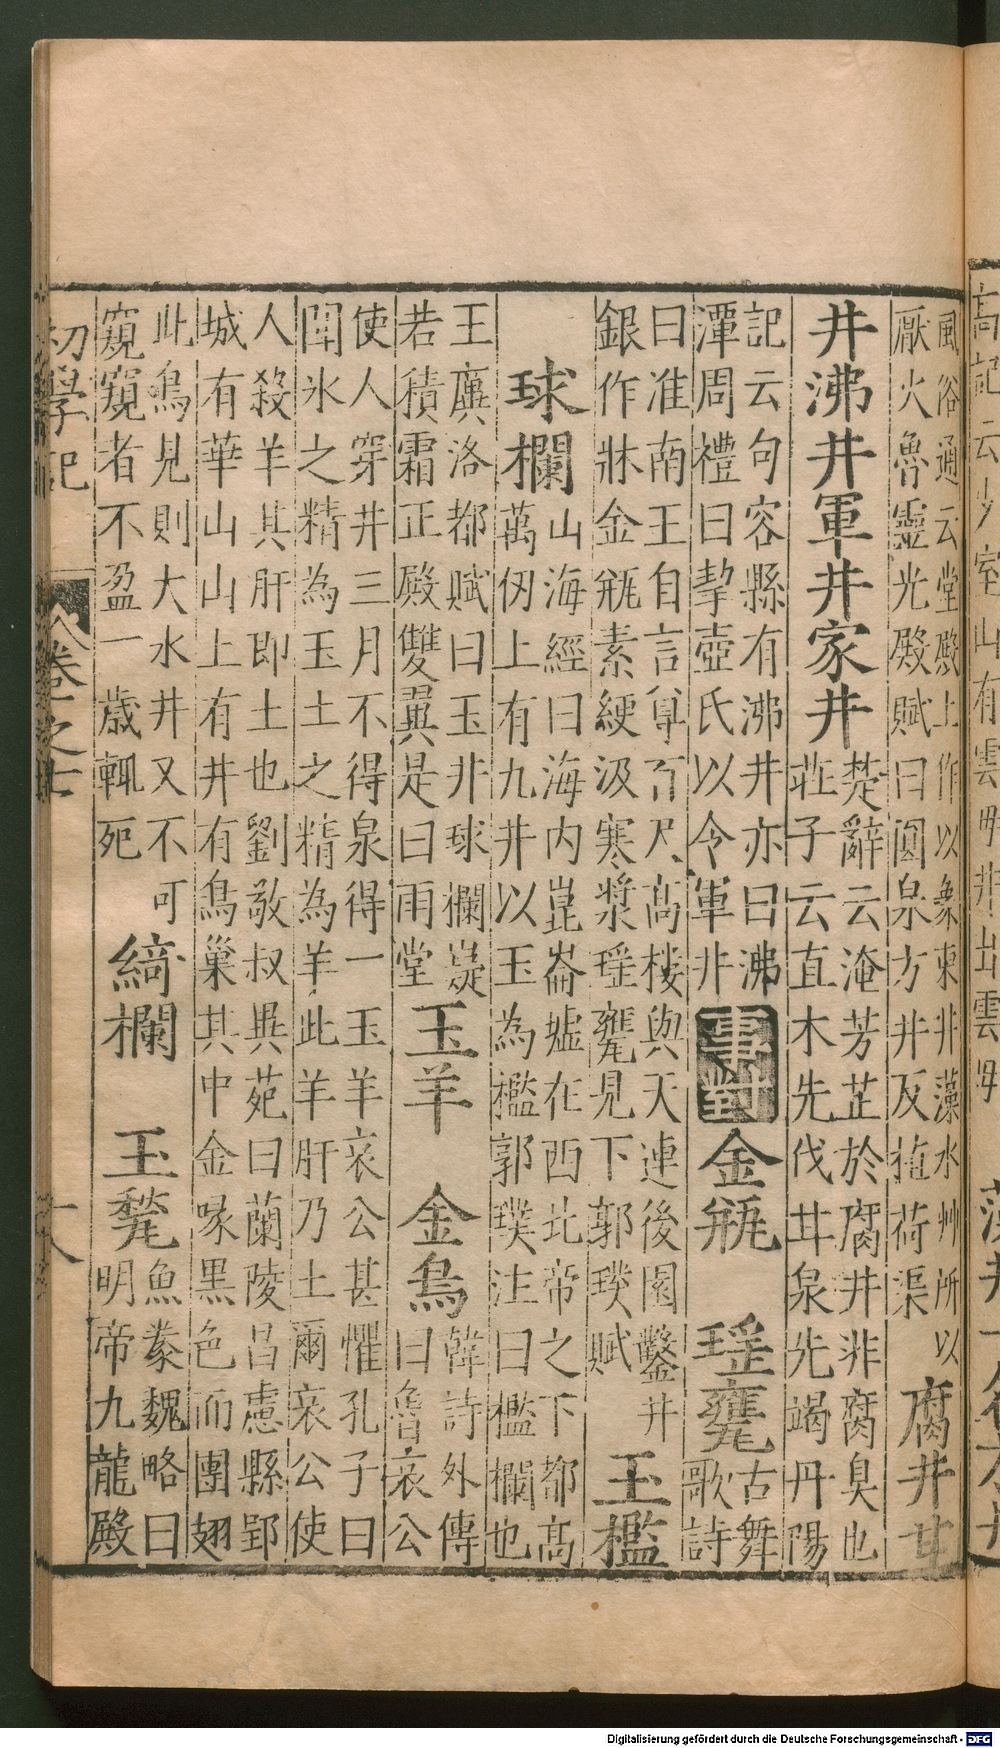 高記云少室山有雲母井出雲母
風俗通云堂殿上作以象東井藻水艸所以
厭火魯靈光殿賦曰圓泉方井反植荷渠
腐井甘
井沸井軍井家井
楚辭云淹芳芷於腐井井腐臭也
莊子云直木先伐甘泉先竭丹陽
記云句容縣有沸井亦曰沸
潭周禮曰挈壺氏以令軍井
事對
金瓶 瑶甕
古舞
歌詩
曰淮南王自言尊百尺高樓與天連後園鑿井
銀作牀金瓶素綆汲寒漿瑶甕見下郭璞賦
玉檻
球欄
山海經曰海内崑崙墟在西北帝之下都高
萬仞上有九井以玉為檻郭璞注曰檻欄也
王廙洛都賦曰玉井球欄嶷
若積霜正殿雙翼是曰雨堂
玉羊 金烏
韓詩外傳
曰魯哀公
使人穿井三月不得泉得一玉羊哀公甚懼孔子曰
聞水之精為玉土之精為羊此羊肝乃土爾哀公使
人殺羊其肝即土也劉敬叔異苑曰蘭陵昌慮縣郢
城有華山山上有井有鳥巢其中金喙黑色而團翅
此鳥見則大水井又不可
窺窺者不盈一歲輒死
綺欄 玉甃
魚豢魏略曰
明帝九龍殿
初學記
卷之七
Digitalisierung gefördert durch die Deutsche Forschungsgemeinschaft - DFG